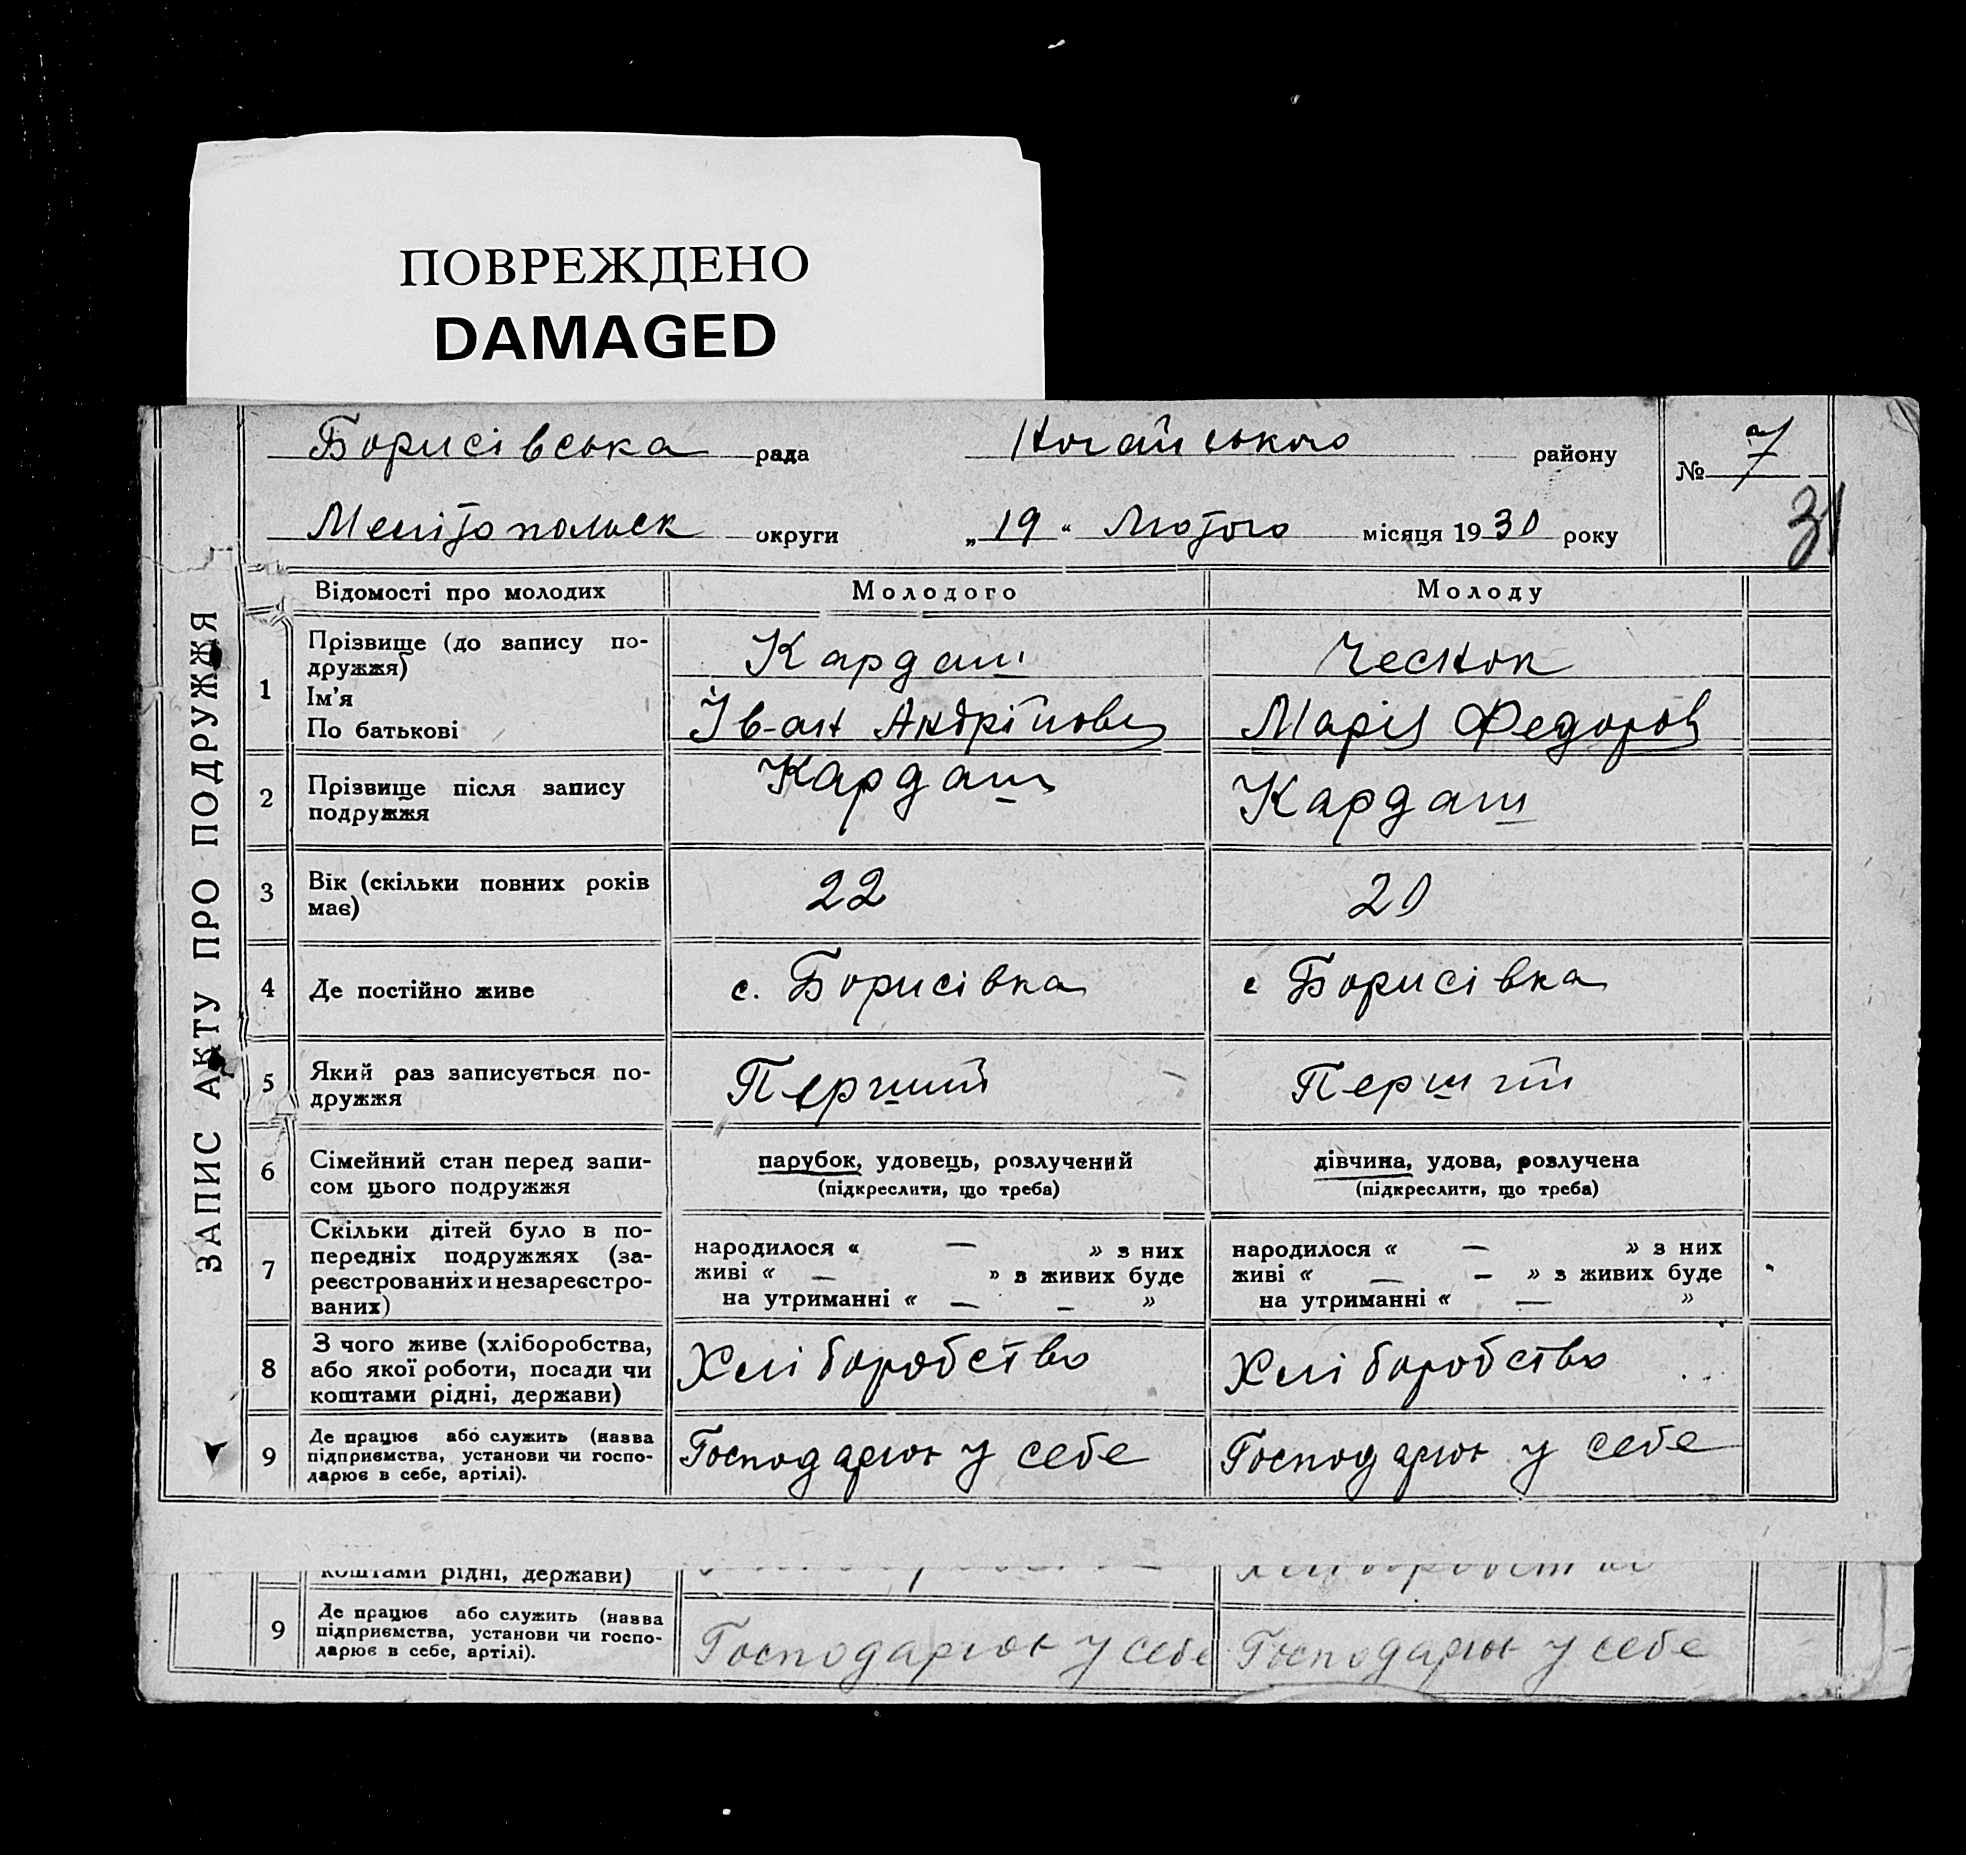 ПОВРЕЖДЕНО
DAMAGED
Борисівська рада Ногайського району № 7
Мелітопольск округи „19“ Лютого місяця 1930 року
31
ЗАПИС АКТУ ПРО ПОДРУЖЖЯ
Відомості про молодих Молодого Молоду
1 Прізвище (до запису по-
дружжя) Кардаш Чеснок
Ім'я
По батькові Іван Андрійович Марія Федоров
2 Прізвище після запису
подружжя Кардаш Кардаш
3 Вік (скільки повних років
має) 22 20
4 Де постійно живе с. Борисівка с Борисівка
5 Який раз записується по-
дружжя Перший Перший
6 Сімейний стан перед запи-
сом цього подружжя парубок, удовець, розлучений дівчина, удова, розлучена
(підкреслити, що треба) (підкреслити, що треба)
7 Скільки дітей було в по-
передніх подружжях (за-
реєстрованих и незареєстро-
ваних) народилося « — » з них народилося « — » з них
живі « — » з живих буде живі « — — » з живих буде
на утриманні « — — » на утриманні « — »
8 З чого живе (хліборобства,
або якої роботи, посади чи
коштами рідні, держави) Хліборобство Хліборобство
9 Де працює або служить (назва
підприємства, установи чи госпо-
дарює в себе, артілі). Господарює у себе Господарює у себе
коштами рідні, держави)
9 Де працює або служить (назва
підприємства, установи чи госпо-
дарює в себе, артілі). Господарює у себе Господарює у себе